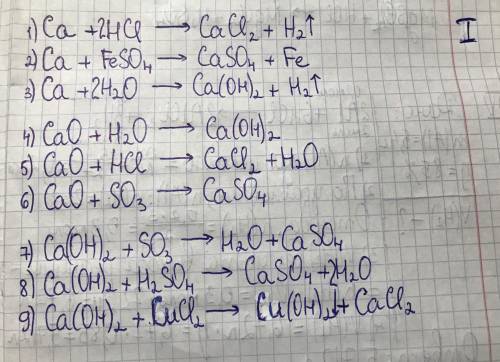 I
1) Ca + 2HCl → CaCl₂ + H₂↑
2) Ca + FeSO₄ → CaSO₄ + Fe
3) Ca + 2H₂O → Ca(OH)₂ + H₂↑
4) CaO + H₂O → Ca(OH)₂
5) CaO + HCl → CaCl₂ + H₂O
6) CaO + SO₃ → CaSO₄
7) Ca(OH)₂ + SO₃ → H₂O + CaSO₄
8) Ca(OH)₂ + H₂SO₄ → CaSO₄ + 2H₂O
9) Ca(OH)₂ + CuCl₂ → Cu(OH)₂↓ + CaCl₂